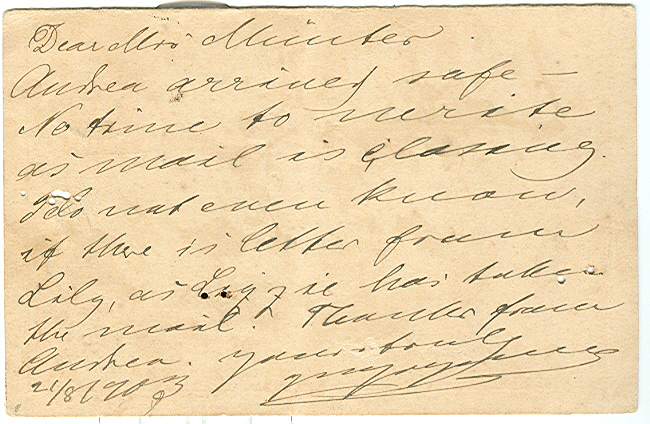 Dear Mrs Münter
Andrea arrived safe —
No time to write
as mail is closing.
I do not even know,
if there is letter from
Lily, as Lizzie has taken
the mail. Thanks from
Andrea. yours truly
21/8/1903